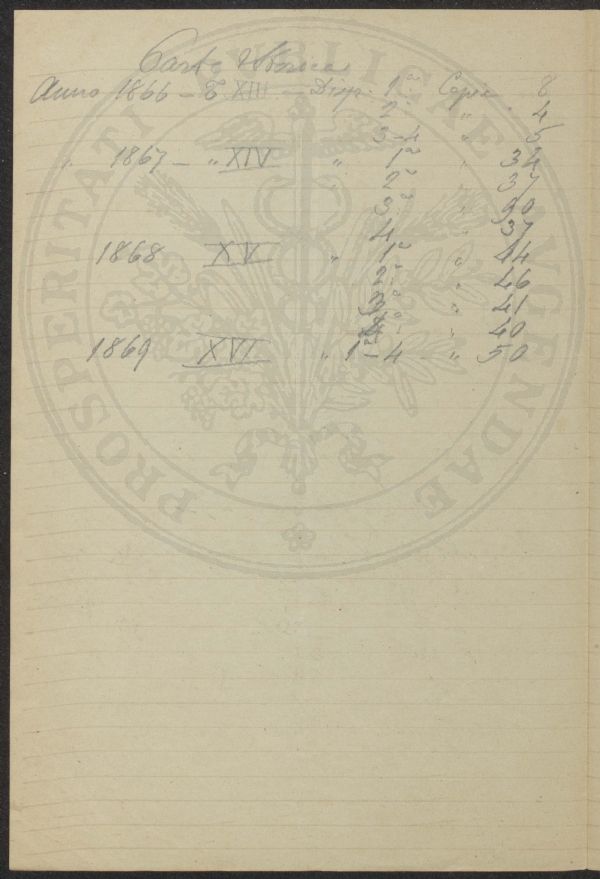 Parte Storica
Anno 1866 - T° XIII - Disp. 1ª Copie 8
2ª " 4
3-4 " 5
" 1867 - " XIV " 1ª " 34
2ª 37
3ª " 90
4 " 37
1868 XV " 1ª " 44
2ª " 46
3ª " 41
4ª " 40
1869 XVI " 1ª-4 " 50
PROSPERITATI PUBLICAE AUGENDAE